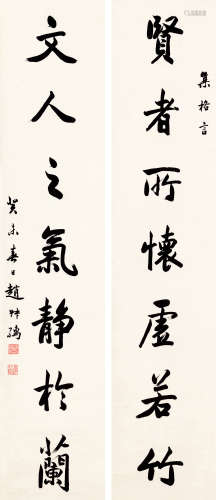 集格言
賢者所懷虛若竹
文人之氣靜於蘭
癸未春日趙